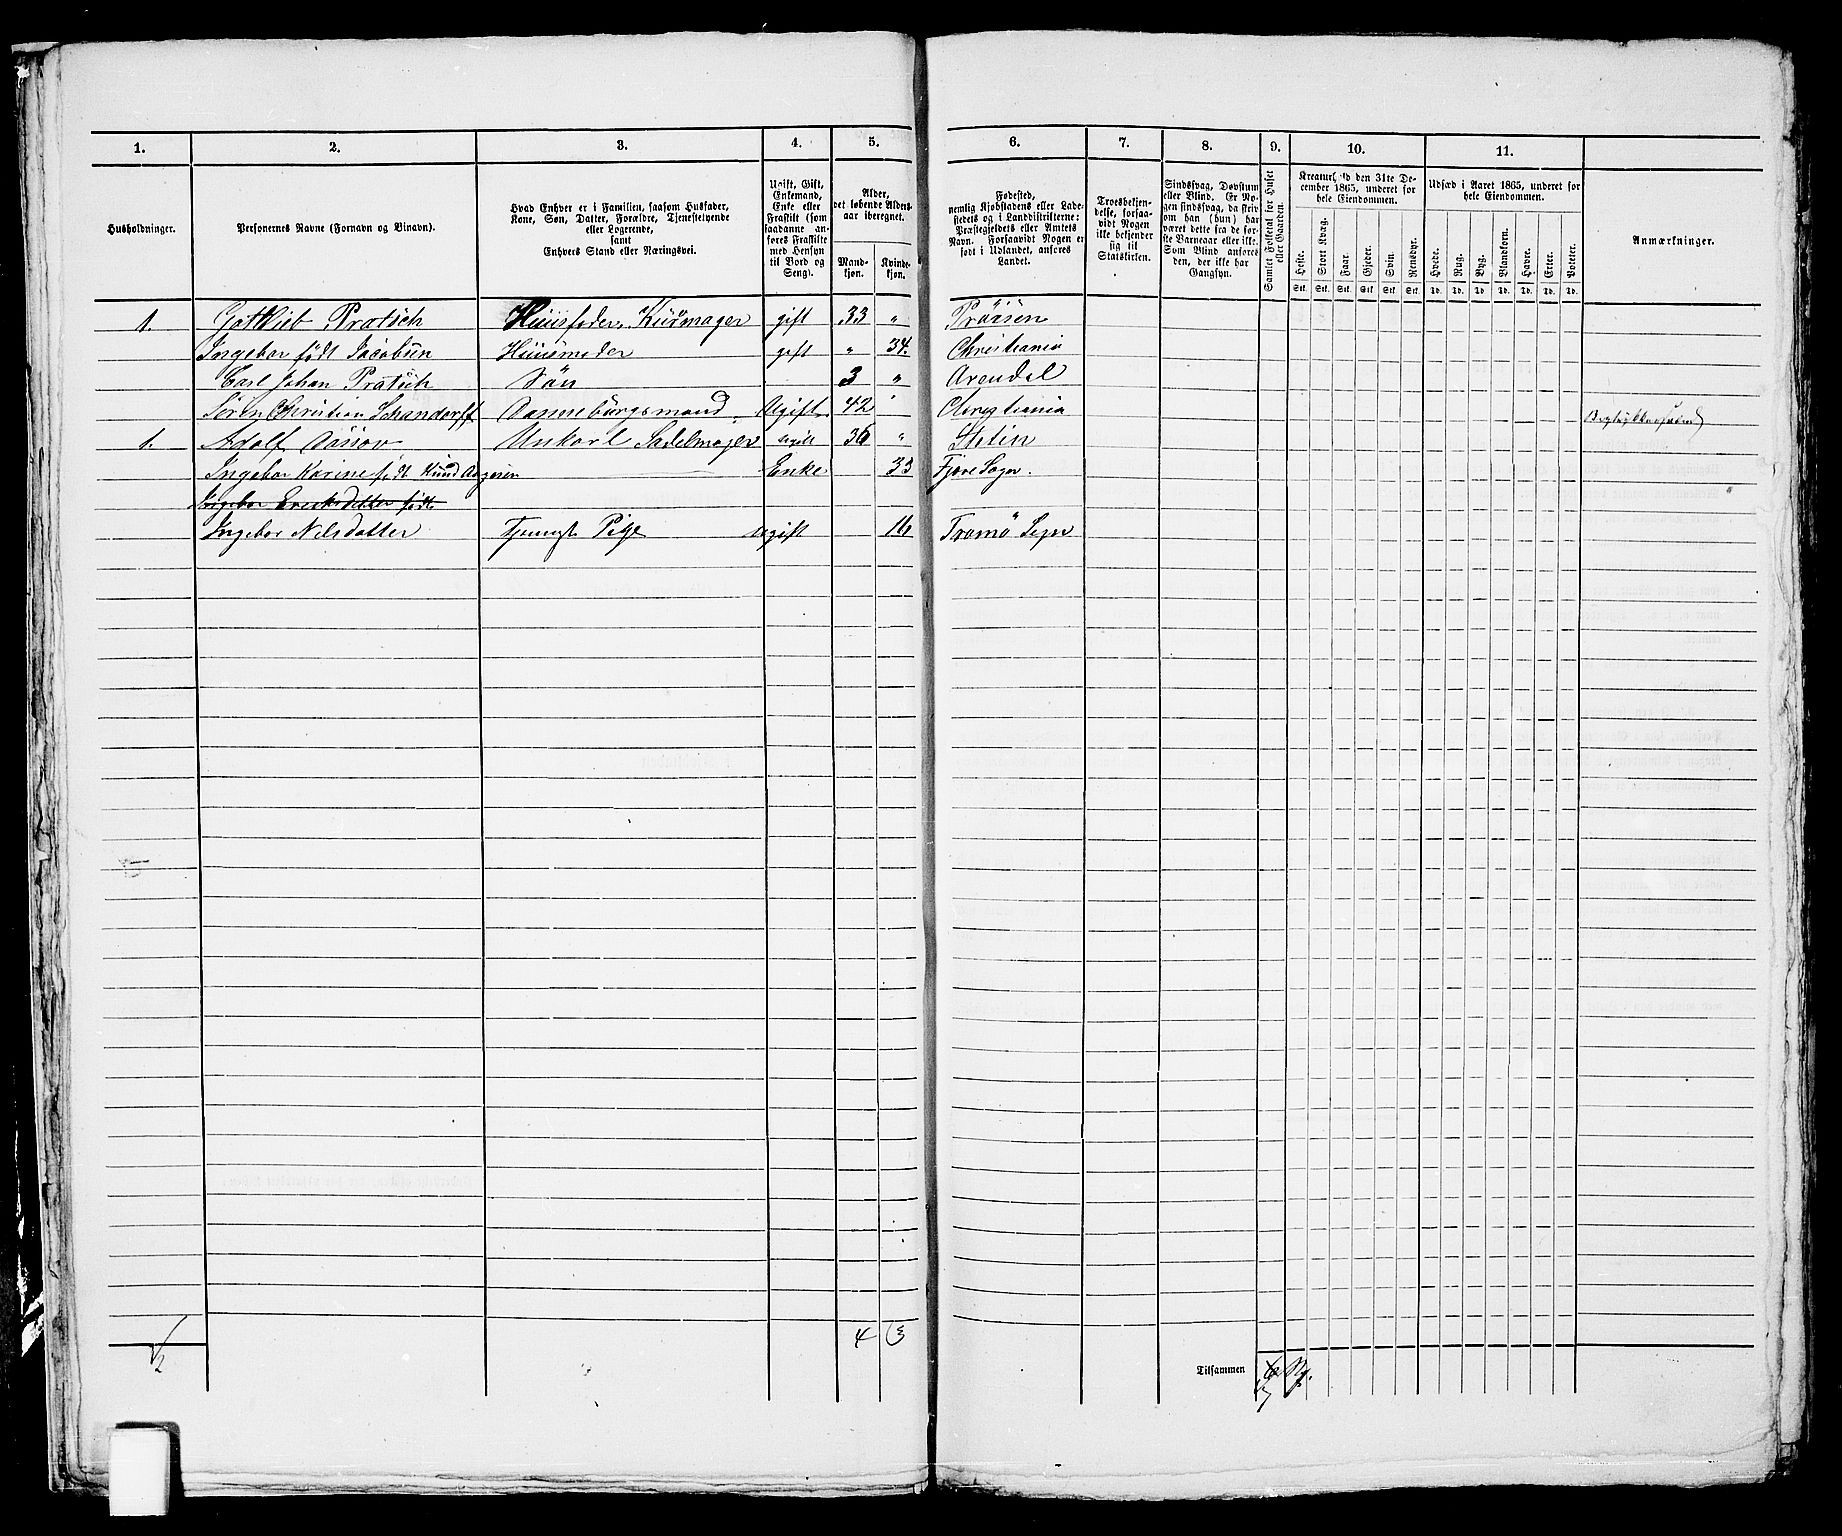 1. 2. 3. 4. 5. 6. 7. 8. 9. 10. 11.
Husholdninger.
Personernes Navne (Fornavn og Tilnavn).
Hvad Enhver er i Familien, saasom Husfader,
Kone, Søn, Datter, Forældre, Tjenestetyende
eller Logerende,
samt
Enhvers Stand eller Næringsvei.
Ugift, Gift,
Enkemand,
Enke eller
Fraskilt (som
saadanne an-
føres Fraskilte
med Hensyn
til Bord og
Seng).
Alder,
det løbende Alders-
aar iberegnet.
Mand-
kjøn.
Kvinde-
kjøn.
Fødested,
nemlig Kjøbstadens eller Lade-
stedets og i Landdistrikterne:
Præstegjeldets eller Amtets
Navn. Forsaavidt Nogen er
født i Udlandet, anføres
Landet.
Troesbekjen-
delse, forsaa-
vidt Nogen
ikke bekjender
sig til
Statskirken.
Sindssvag, Døvstum
eller Blind. Er No-
gen sindssvag, da skriv
om han (hun) har
været dette fra de før-
ste Barneaar eller ikke.
Som Blind anføres
den, der ikke har
Gangsyn.
Samlet Folketal for Huset
eller Gaarden.
Kreaturhold den 31te De-
cember 1865, underet for
hele Eiendommen.
Heste. Stort Kvæg. Faar. Gjeder. Svin. Rensdyr.
Stk. Stk. Stk. Stk. Stk. Stk.
Udsæd i Aaret 1865, underet for
hele Eiendommen.
Hvede. Rug. Byg. Blandkorn. Havre. Erter. Poteter.
Td. Td. Td. Td. Td. Td. Td.
Anmærkninger.
1. Gotklieb Pratsch Huusfader, Kurvmager gift 33 " Pröisen
Ingebor født Jacobsen Huusmoder gift " 34. Christiania
Carl Johan Pratsch Sön 3 " Arendal
Sören Christian Schandorff Dannebrogsmand. Ugift 42 " Christiania
1. Adolf Dassov Unkarl Sadelmager ugift 36 " Stetin
Ingebor Karine født Knud Aagesen Enke 33 Fjære Sogn.
Ingebor Ericksdatter født
Ingebor Nilsdatter Tjeneste Pige ugift 16 Tromö Sogn
2 4 3
Tilsammen 7